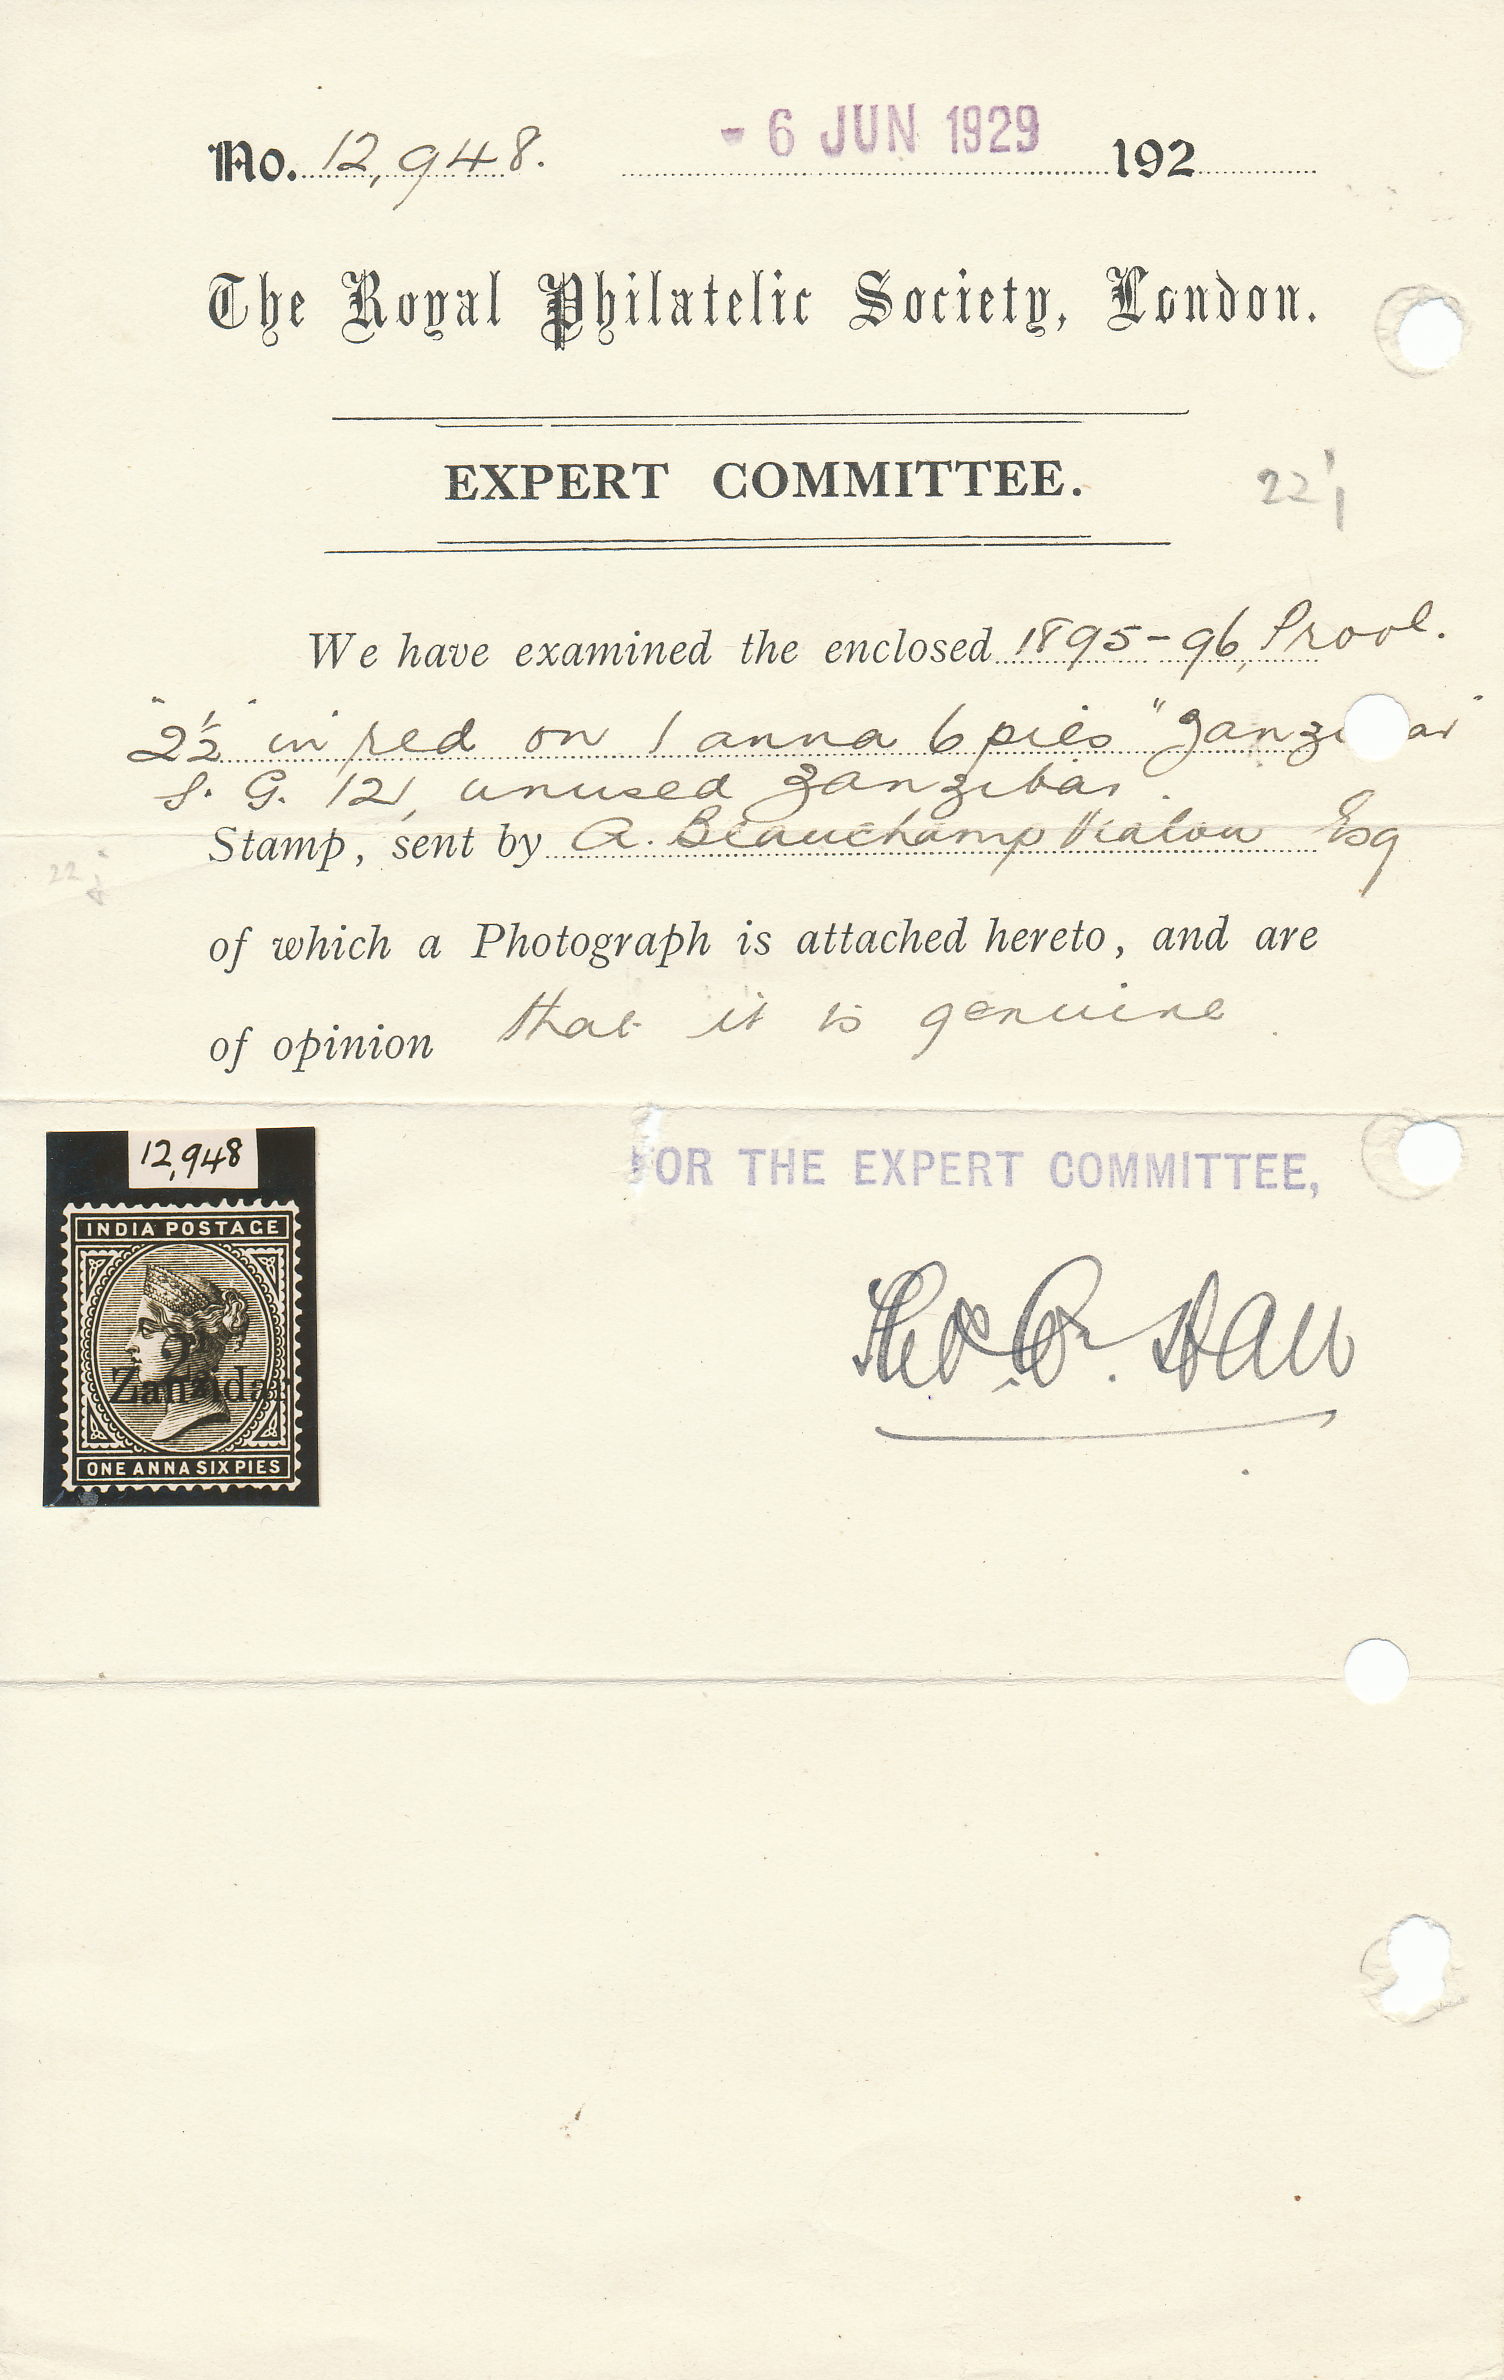 No. 12,948. - 6 JUN 1929 192
The Royal Philatelic Society, London.
EXPERT COMMITTEE.
22
We have examined the enclosed 1895-96, Provl.
"2½" in red on 1 anna 6 pies "Zanzi ar"
S. G. 121, unused Zanzibar.
Stamp, sent by A. Beauchamp Esq
22 j
of which a Photograph is attached hereto, and are
of opinion that it is genuine.
12,948
FOR THE EXPERT COMMITTEE,
INDIA POSTAGE
2½
Zanzidar
ONE ANNA SIX PIES
Hall